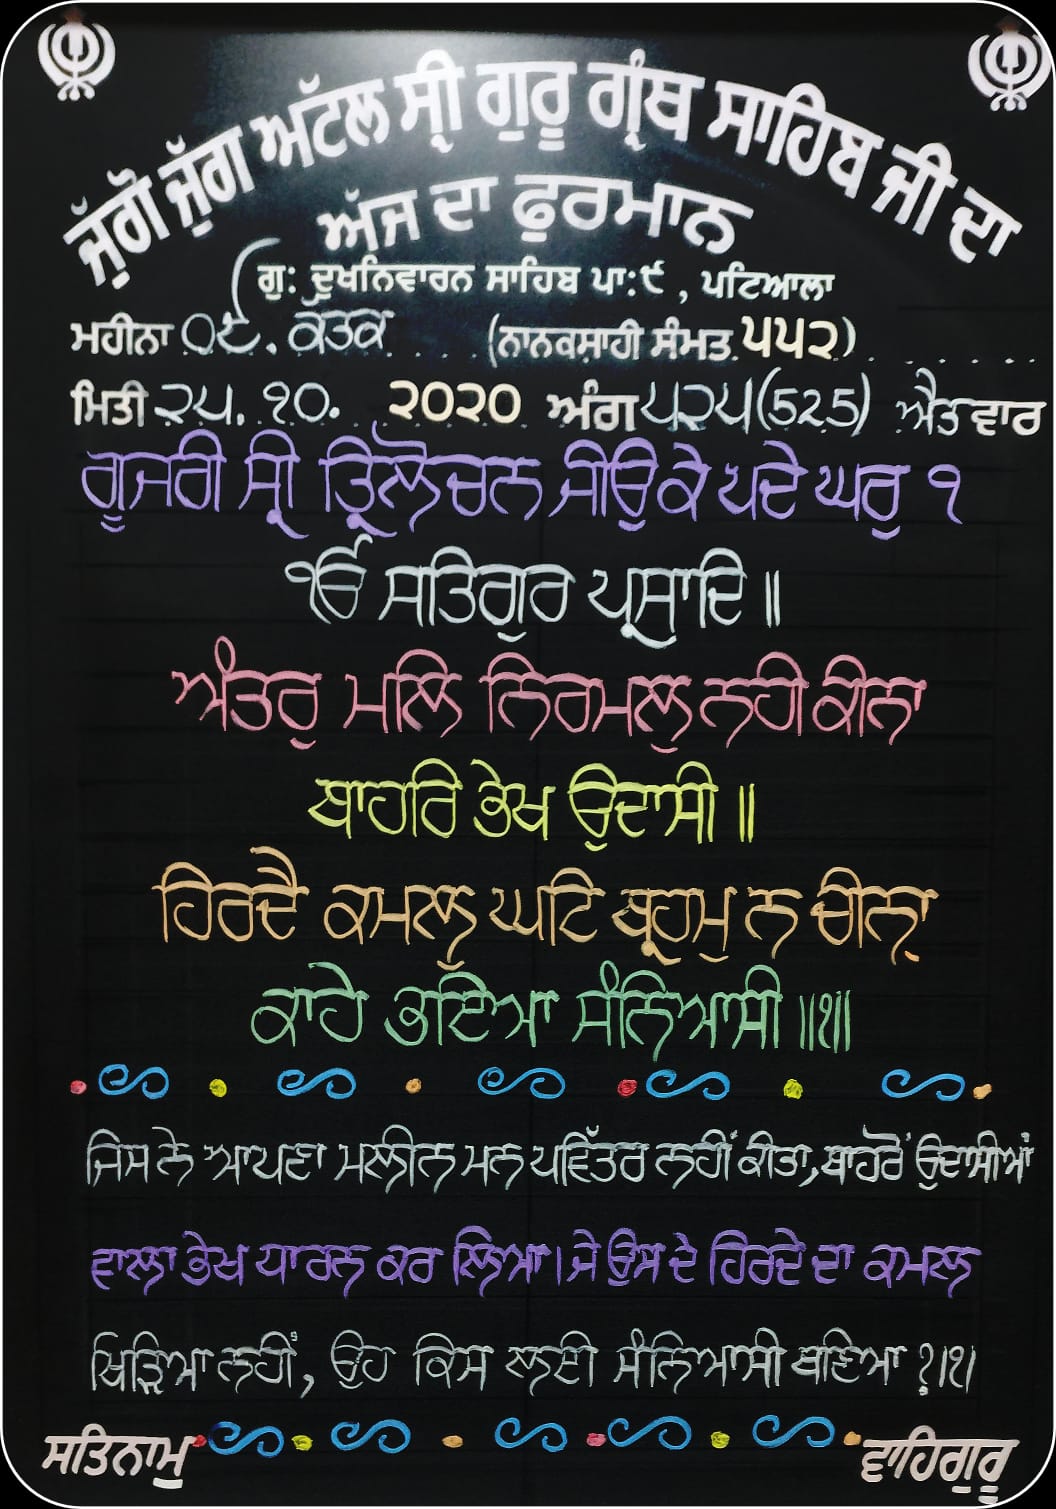 ਜੁੱਗੋ ਜੁੱਗ ਅਟੱਲ ਸ੍ਰੀ ਗੁਰੂ ਗ੍ਰੰਥ ਸਾਹਿਬ ਜੀ ਦਾ
ਅੱਜ ਦਾ ਫੁਰਮਾਨ
ਗੁ: ਦੁਖਨਿਵਾਰਨ ਸਾਹਿਬ ਪਾ:੯ , ਪਟਿਆਲਾ
ਮਹੀਨਾ ੦੯. ਕੱਤਕ (ਨਾਨਕਸ਼ਾਹੀ ਸੰਮਤ ੫੫੨)
ਮਿਤੀ ੨੫. ੧੦. ੨੦੨੦ ਅੰਗ ੫੨੫(525) ਐਤਵਾਰ
ਗੂਜਰੀ ਸ੍ਰੀ ਤ੍ਰਿਲੋਚਨ ਜੀਉ ਕੇ ਪਦੇ ਘਰੁ ੧
ੴ ਸਤਿਗੁਰ ਪ੍ਰਸਾਦਿ ॥
ਅੰਤਰੁ ਮਲਿ ਨਿਰਮਲੁ ਨਹੀ ਕੀਨਾ
ਬਾਹਰਿ ਭੇਖ ਉਦਾਸੀ ॥
ਹਿਰਦੈ ਕਮਲੁ ਘਟਿ ਬ੍ਰਹਮੁ ਨ ਚੀਨ੍ਹਾ
ਕਾਹੇ ਭਇਆ ਸੰਨਿਆਸੀ ॥੧॥
ਜਿਸ ਨੇ ਆਪਣਾ ਮਲੀਨ ਮਨ ਪਵਿੱਤਰ ਨਹੀਂ ਕੀਤਾ, ਬਾਹਰੋਂ ਉਦਾਸੀਆਂ
ਵਾਲਾ ਭੇਖ ਧਾਰਨ ਕਰ ਲਿਆ। ਜੇ ਉਸ ਦੇ ਹਿਰਦੇ ਦਾ ਕਮਲ
ਖਿੜਿਆ ਨਹੀਂ, ਉਹ ਕਿਸ ਲਈ ਸੰਨਿਆਸੀ ਬਣਿਆ ?।੧।
ਸਤਿਨਾਮੁ ਵਾਹਿਗੁਰੂ